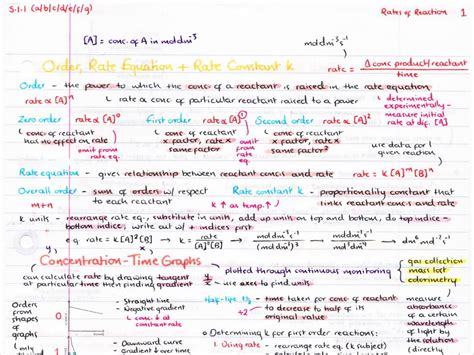 5.1.1 (a/b/c/d/e/f/g) Rates of Reaction 1
[A] = conc. of A in moldm⁻³ moldm⁻³s⁻¹
Order, Rate Equation + Rate Constant k rate = Δ conc product/reactant / time
Order - the power to which the conc of a reactant is raised in the rate equation
rate ∝ [A]ⁿ rate ∝ conc of particular reactant raised to a power
determined experimentally - measure initial rate at dif. [A]
Zero order rate ∝ [A]⁰ First order rate ∝ [A]¹ Second order rate ∝ [A]²
conc of reactant has no effect on rate
omit from rate eq.
conc of reactant x factor, rate x same factor
omit from rate eq.
conc of reactant x factor, rate x factor²
use data for given reaction
Rate equation - gives relationship between reactant concs and rate rate = k[A]ᵐ[B]ⁿ
Overall order - sum of orders w/ respect to each reactant
m+n
Rate constant k - proportionality constant that links reactant concs and rate
k ↑ as temp. ↑
k units - rearrange rate eq., substitute in units, add up units on top and bottom, do top indices -
bottom indices, write out w/ + first
e.g. rate = k[A]²[B] → k = rate / [A]²[B] → moldm⁻³s⁻¹ / (moldm⁻³)³ → dm⁶ mol⁻² s⁻¹
Concentration-Time Graphs
plotted through continuous monitoring
gas collection
mass lost
colorimetry
can calculate rate by drawing tangent
at particular time then finding gradient y/x - use axes to find units
Orders from shapes of graphs
0
- Straight line
- Negative gradient
= conc. ↓ at constant rate
Half-life t½ - time taken for conc of reactant
÷2 to decrease to half of its original value
measure absorbance of a certain wavelength
Determining k for first order reactions:
1
- Downward curve
- Gradient decreases over time
1. Using rate - rearrange rate eq. (k subject)